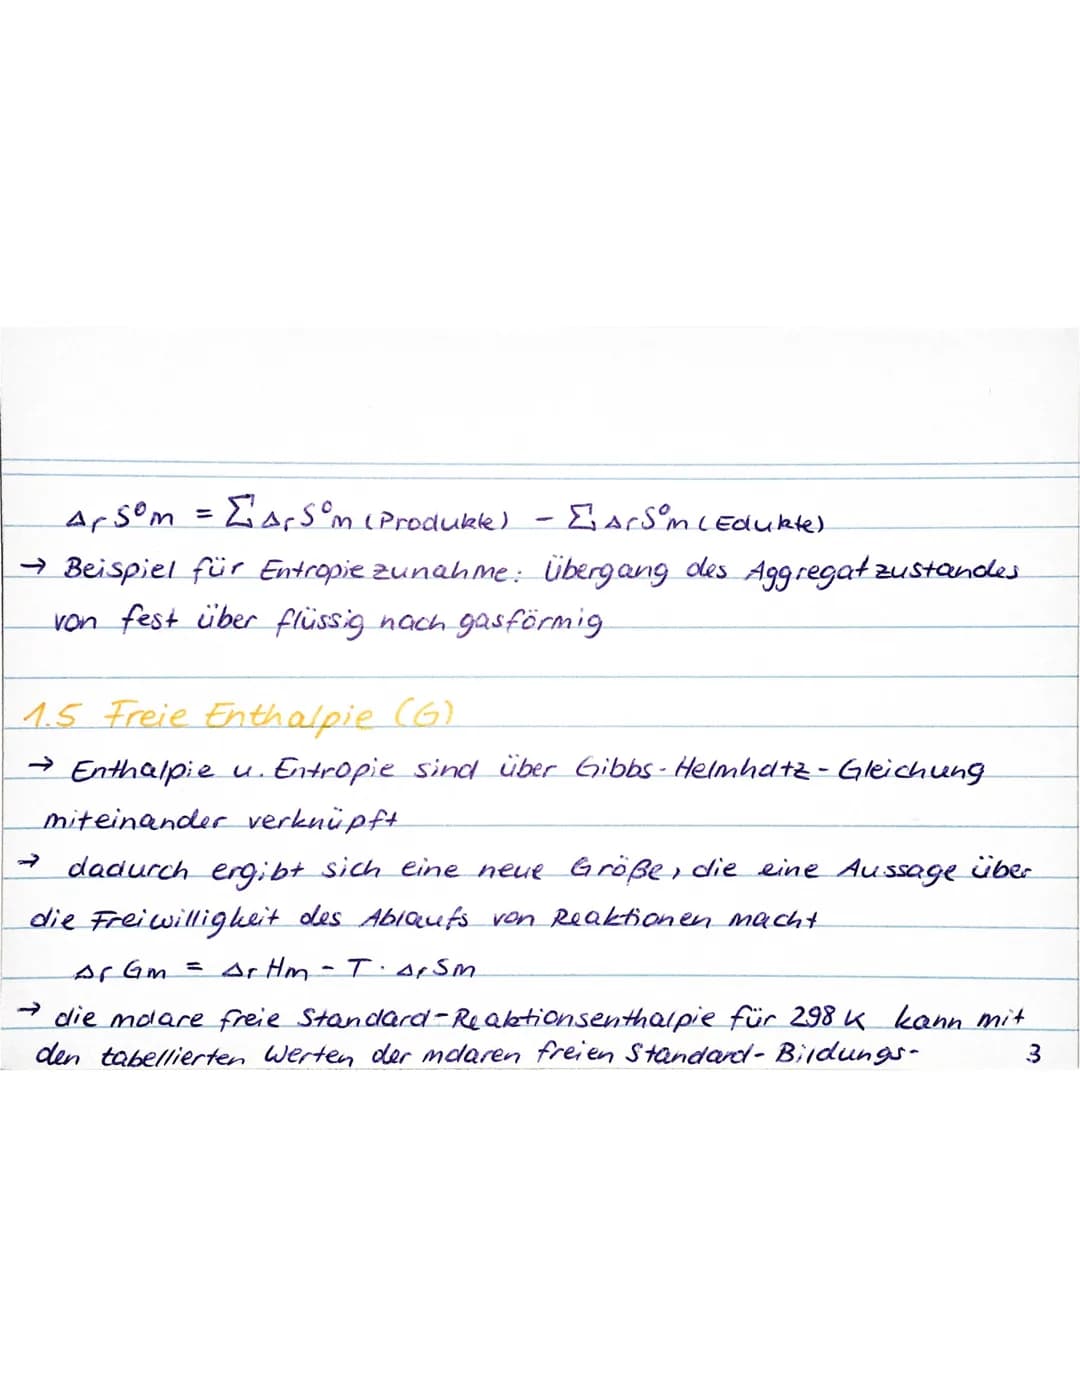 ΔrS⁰m = ΣΔrS⁰m (Produkte) - ΣΔrS⁰m (Edukte)
→ Beispiel für Entropiezunahme: Übergang des Aggregatzustandes
von fest über flüssig nach gasförmig
1.5 Freie Enthalpie (G)
→ Enthalpie u. Entropie sind über Gibbs-Helmholtz-Gleichung
miteinander verknüpft
→ dadurch ergibt sich eine neue Größe, die eine Aussage über
die Freiwilligkeit des Ablaufs von Reaktionen macht
ΔrGm = ΔrHm - T · ΔrSm
→ die molare freie Standard-Reaktionsenthalpie für 298 K kann mit
den tabellierten Werten der molaren freien Standard-Bildungs-
3